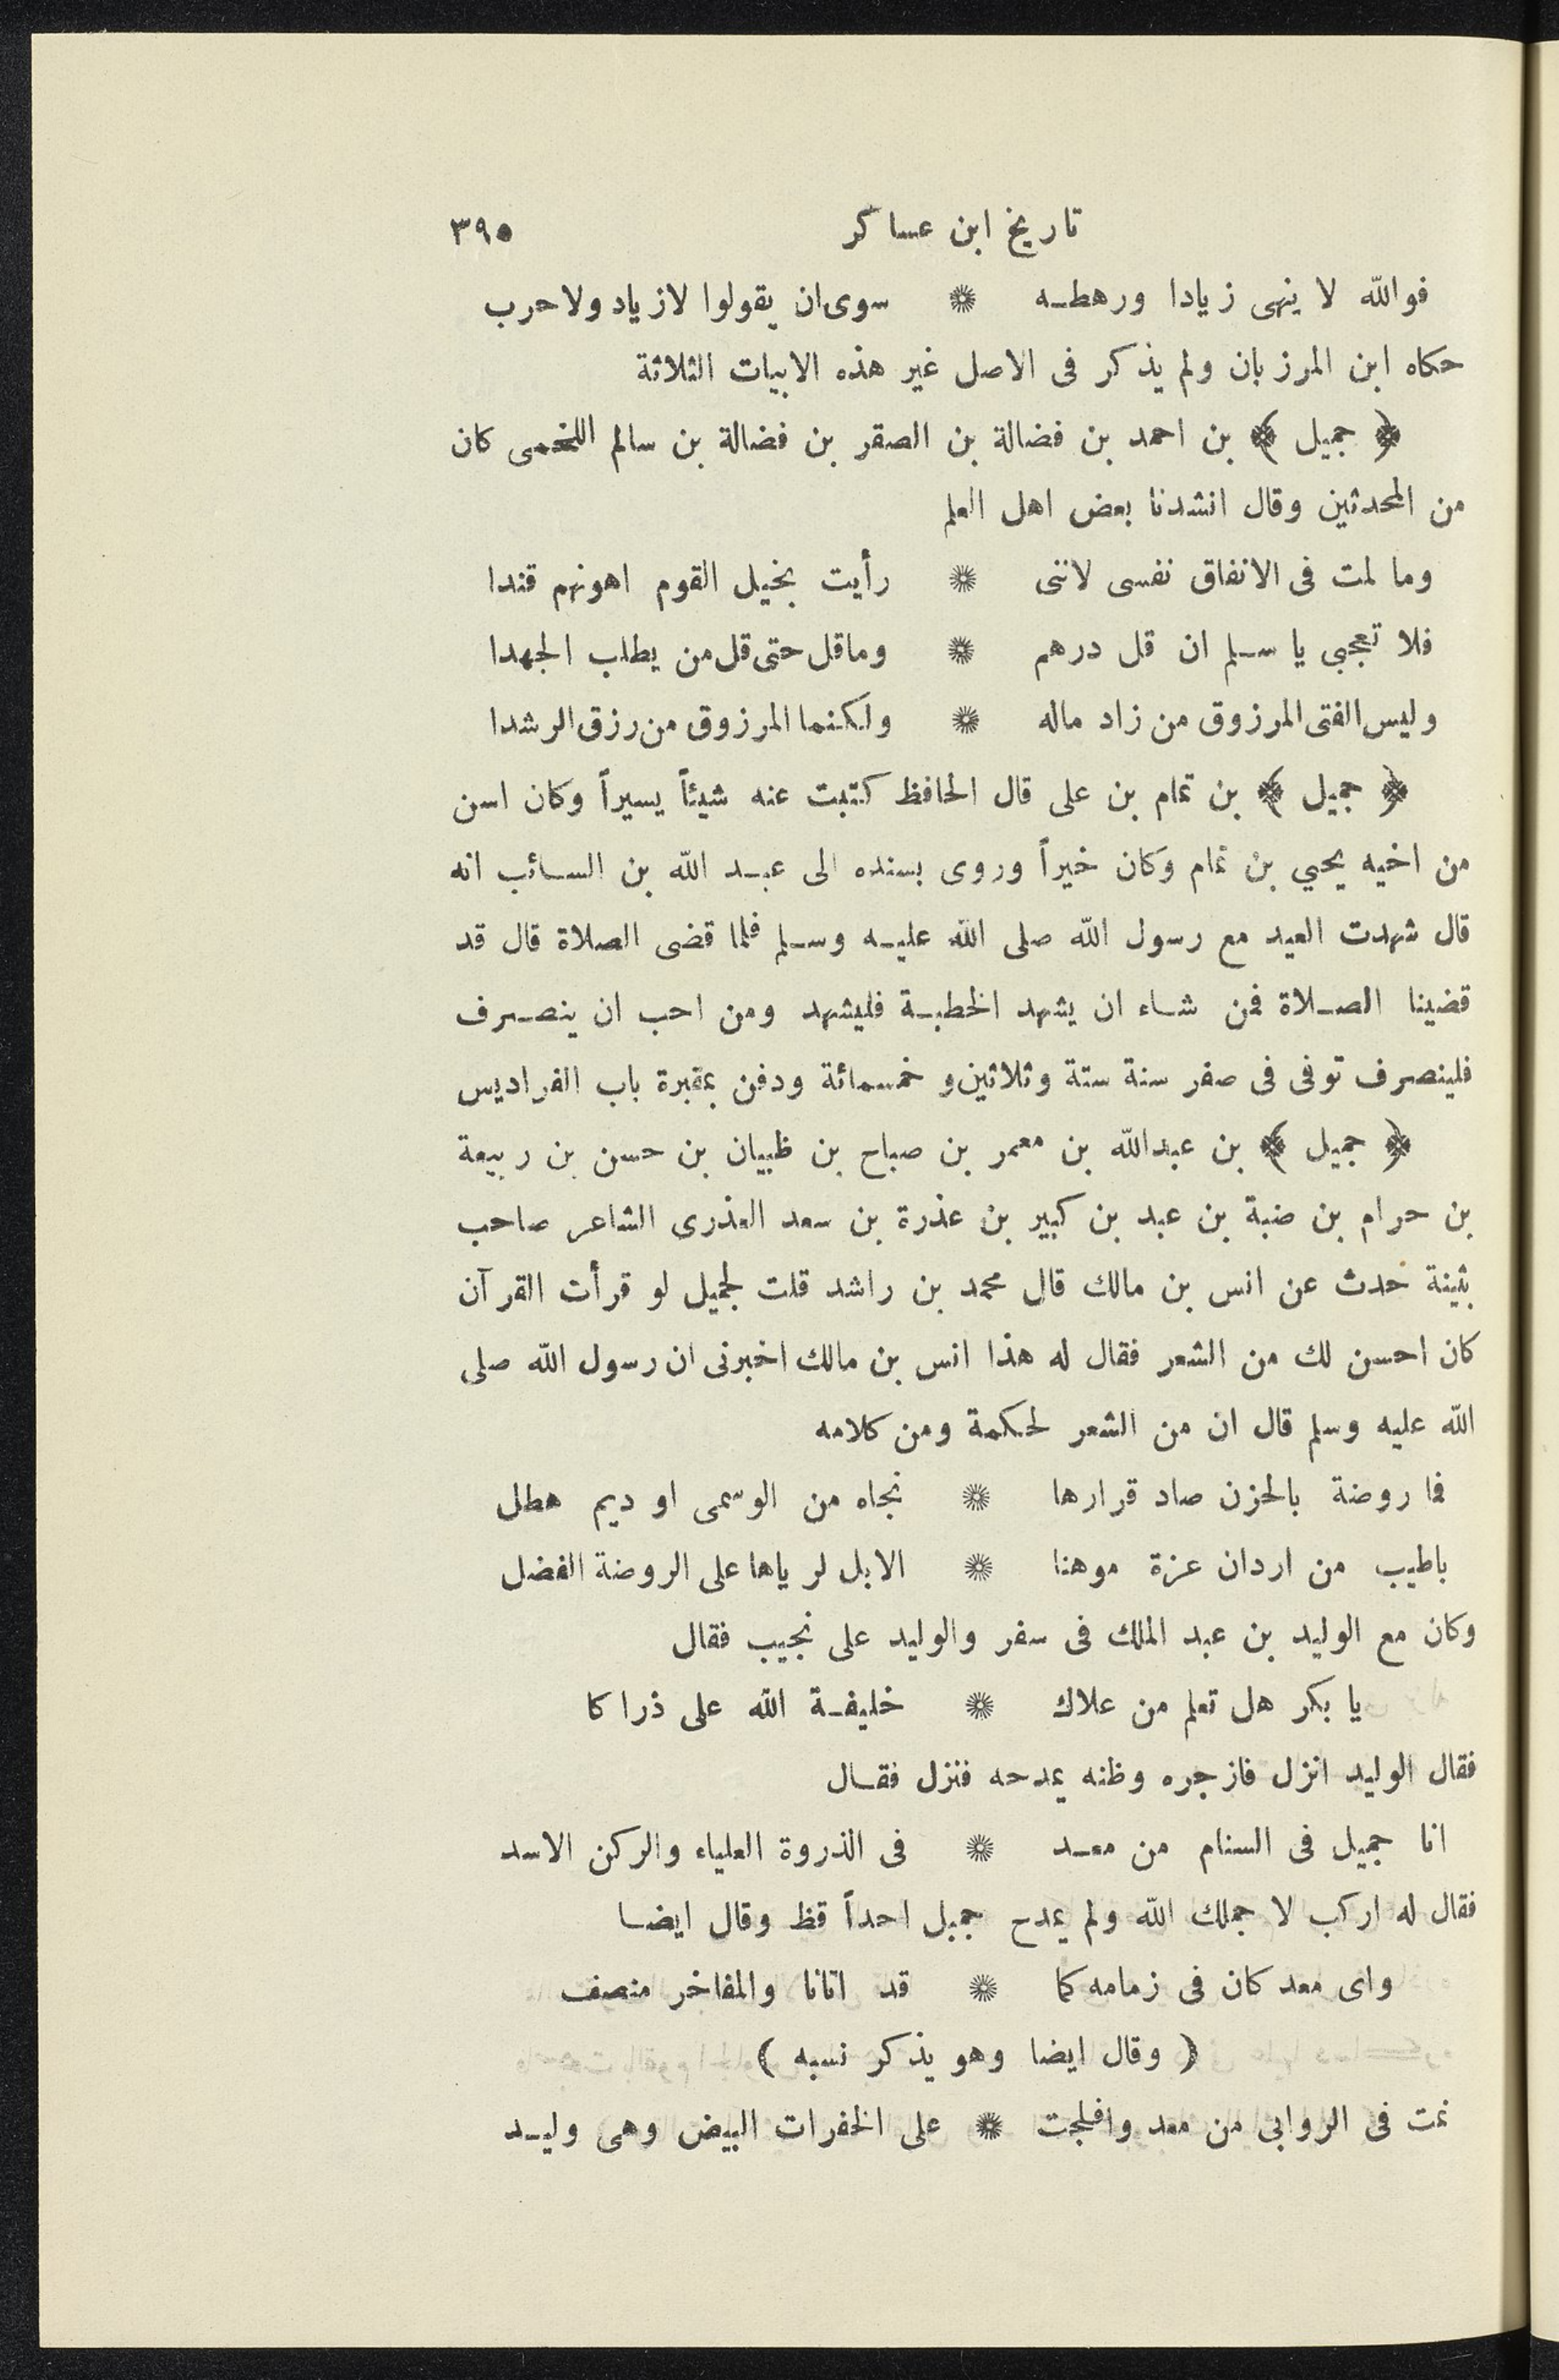 تاريخ ابن عساكر ٣٩٥
فوالله لا ينهى زيادا ورهطـه * سوى ان يقولوا لازياد ولا حرب
حكاه ابن المرزبان ولم يذكر فى الاصل غير هذه الابيات الثلاثة
﴿ جميل ﴾ بن احمد بن فضالة بن الصقر بن فضالة بن سالم اللخمى كان
من المحدثين وقال انشدنا بعض اهل العلم
وما لمت فى الانفاق نفسى لاننى * رأيت بخيل القوم اهونهم قندا
فلا تعجبى يا سـلم ان قل درهم * وماقل حتى قل من يطلب الجهدا
وليس الفتى المرزوق من زاد ماله * ولكنما المرزوق من رزق الرشدا
﴿ جميل ﴾ بن تمام بن على قال الحافظ كتبت عنه شيئاً يسيراً وكان اسن
من اخيه يحيي بن تمام وكان خيراً وروى بسنده الى عبـد الله بن السـائب انه
قال شهدت العيد مع رسول الله صلى الله عليـه وسـلم فلما قضى الصلاة قال قد
قضينا الصـلاة فمن شـاء ان يشهد الخطبـة فليشهد ومن احب ان ينصـرف
فلينصرف توفى فى صفر سنة ستة وثلاثين و خمسمائة ودفن بمقبرة باب الفراديس
﴿ جميل ﴾ بن عبدالله بن معمر بن صباح بن ظبيان بن حسن بن ربيعة
بن حرام بن ضبة بن عبد بن كبير بن عذرة بن سعد العذرى الشاعر صاحب
بثينة حدث عن انس بن مالك قال محمد بن راشد قلت لجميل لو قرأت القرآن
كان احسن لك من الشعر فقال له هذا انس بن مالك اخبرنى ان رسول الله صلى
الله عليه وسلم قال ان من الشعر لحكمة ومن كلامه
فما روضة بالحزن صاد قرارها * نجاه من الوسمى او ديم هطل
باطيب من اردان عزة موهنا * الابل لرياها على الروضة الفضل
وكان مع الوليد بن عبد الملك فى سفر والوليد على نجيب فقال
يا بكر هل تعلم من علاك * خليفـة الله على ذراكا
فقال الوليد انزل فازجره وظنه يمدحه فنزل فقـال
انا جميل فى السنام من معـد * فى الذروة العلياء والركن الاسد
فقال له اركب لا حملك الله ولم يمدح جميل احداً قظ وقال ايضـا
واى معد كان فى زمامه كما * قد اتانا والمفاخر منصف
( وقال ايضا وهو يذكر نسبه )
نمت فى الروابى من معد وافلجت * على الخفرات البيض وهى وليـد